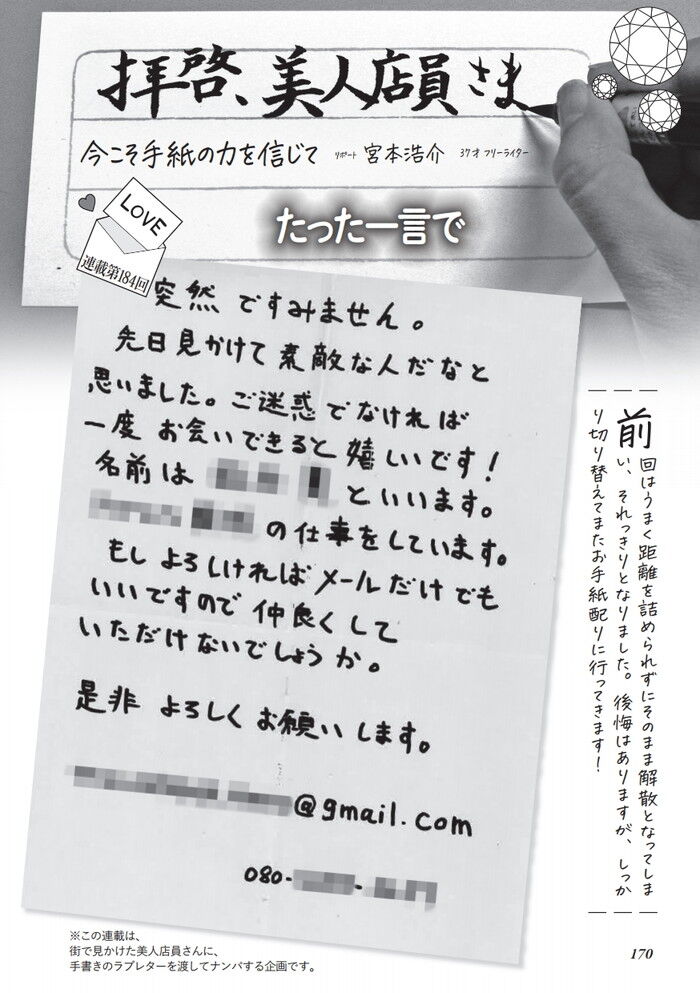 拝啓、美人店員さま
今こそ手紙の力を信じて リポート 宮本浩介 37才 フリーライター
LOVE
連載第184回
たった一言で
突然ですみません。
先日見かけて素敵な人だなと
思いました。ご迷惑でなければ
一度お会いできると嬉しいです!
名前は といいます。
の仕事をしています。
もしよろしければメールだけでも
いいですので仲良くして
いただけないでしょうか。
是非よろしくお願いします。
@gmail.com
080- -
前回はうまく距離を詰められずにそのまま解散となってしま
い、それっきりとなりました。後悔はありますが、しっか
り切り替えてまたお手紙配りに行ってきます!
※この連載は、
街で見かけた美人店員さんに、
手書きのラブレターを渡してナンパする企画です。
170